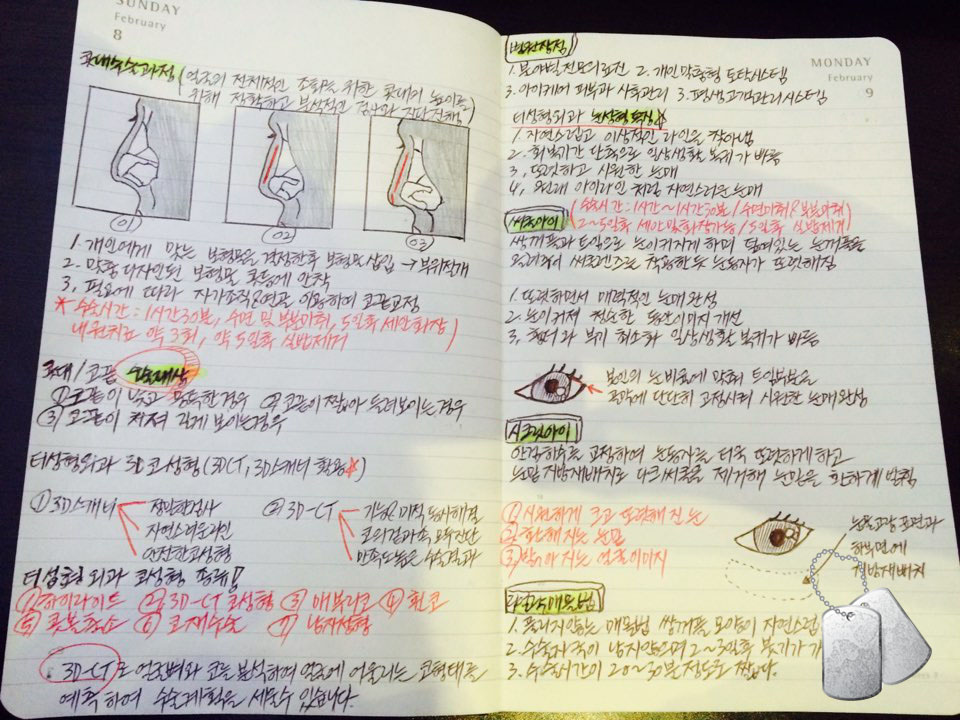 SUNDAY
February
8
콧대수술과정 (얼굴의 전체적인 조화를 위한 콧대의 높이를
위해 정확하고 분석적인 검사와 진단진행)
01
02
03
1. 개인에게 맞는 보형물을 결정한후 보형물삽입 → 부위절개
2. 맞춤 디자인된 보형물 콧등에 안착
3. 필요에 따라 자가조직&연골 이용하여 코끝교정
* 수술시간: 1시간30분, 수면 및 부분마취, 5일후 세안화장,
내원치료 약 3회, 약 5일후 실밥제거
콧대/코끝 수술대상
① 코끝이 낮고 뭉뚝한경우 ② 코끝이 짧아 들려보이는경우
③ 코끝이 쳐져 길게 보이는경우
터성형외과 3D코성형 (3DCT, 3D스캐너 활용)
① 3D스캐너 정밀한검사
자연스러운라인
안전한코성형
② 3D-CT 기능과 미적 동시해결
코의결과예측, 교정진단
만족도높은 수술결과
터성형외과 코성형 종류!
① 하이라이트 ② 3D-CT 코성형 ③ 매부리코 ④ 휜코
⑤ 콧볼축소 ⑥ 코재수술 ⑦ 남자성형
3D-CT로 얼굴뼈와 코를 분석하여 얼굴에 어울리는 코형태를
예측하여 수술계획을 세울수 있습니다.
MONDAY
February
9
병원장점
1. 분야별전문의료진 2. 개인맞춤형 토탈시스템
3. 아이케어 피부과 사후관리 3. 평생고객관리시스템
터성형외과 눈성형특징
1. 자연스럽고 이상적인 라인을 잡아냄
2. 회복기간 단축으로 일상생활 복귀가 빠름
3. 또렷하고 시원한 눈매
4. 원래 아이라인 처럼 자연스러운눈매
써클아이 (수술시간: 1시간~1시간30분/수면마취&부분마취)
2~5일후 세안및화장가능/5일후 실밥제거
쌍꺼풀과 트임으로 눈이커지게 하며 덮여있는 눈꺼풀을
올려줘서 써클렌즈를 착용한듯 눈동자가 또렷해짐
1. 또렷하면서 매력적인 눈매완성
2. 눈이커져 청순한 동안이미지 개선
3. 흉터와 붓기 최소화 일상생활 복귀가 빠름
본인의 눈 비율에 맞춰 트임부분을
골막에 단단히 고정시켜 시원한 눈매완성
시크릿아이
안검하수를 교정하여 눈동자를 더욱 또렷하게하고
눈밑 지방재배치로 다크써클을 제거해 눈밑을 환하게 밝힘
① 시원하게 크고 또렷해진 눈
② 환해지는 눈밑
③ 밝아지는 얼굴이미지
눈물고랑 표면과
하부면에
지방재배치
매몰법
1. 풀리지않는 매몰법 쌍꺼풀 모양이 자연스럽
2. 수술자국이 남지않으며 2~3일후 붓기가
3. 수술시간이 20~30분정도로 짧다.